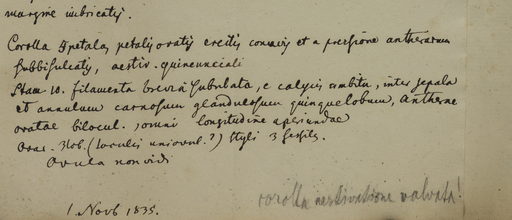 margine imbricatis.
Corolla 5petala, petalis ovatis erectis connivis et a pressione antherarum
subbisulcatis, aestiv. quincunciali
Stam. 10. filamenta brevia subulata, e calycis ambitu, inter sepala
et annulum carnosum glandulosum quinquelobum, antherae
ovatae bilocul., omni longitudine aperiundae
Ovar. 3lob. (loculis uniovul.?) Styli 3 sessiles.
Ovula non vidi
1. Novb 1835.
corolla aestivatione valvata!